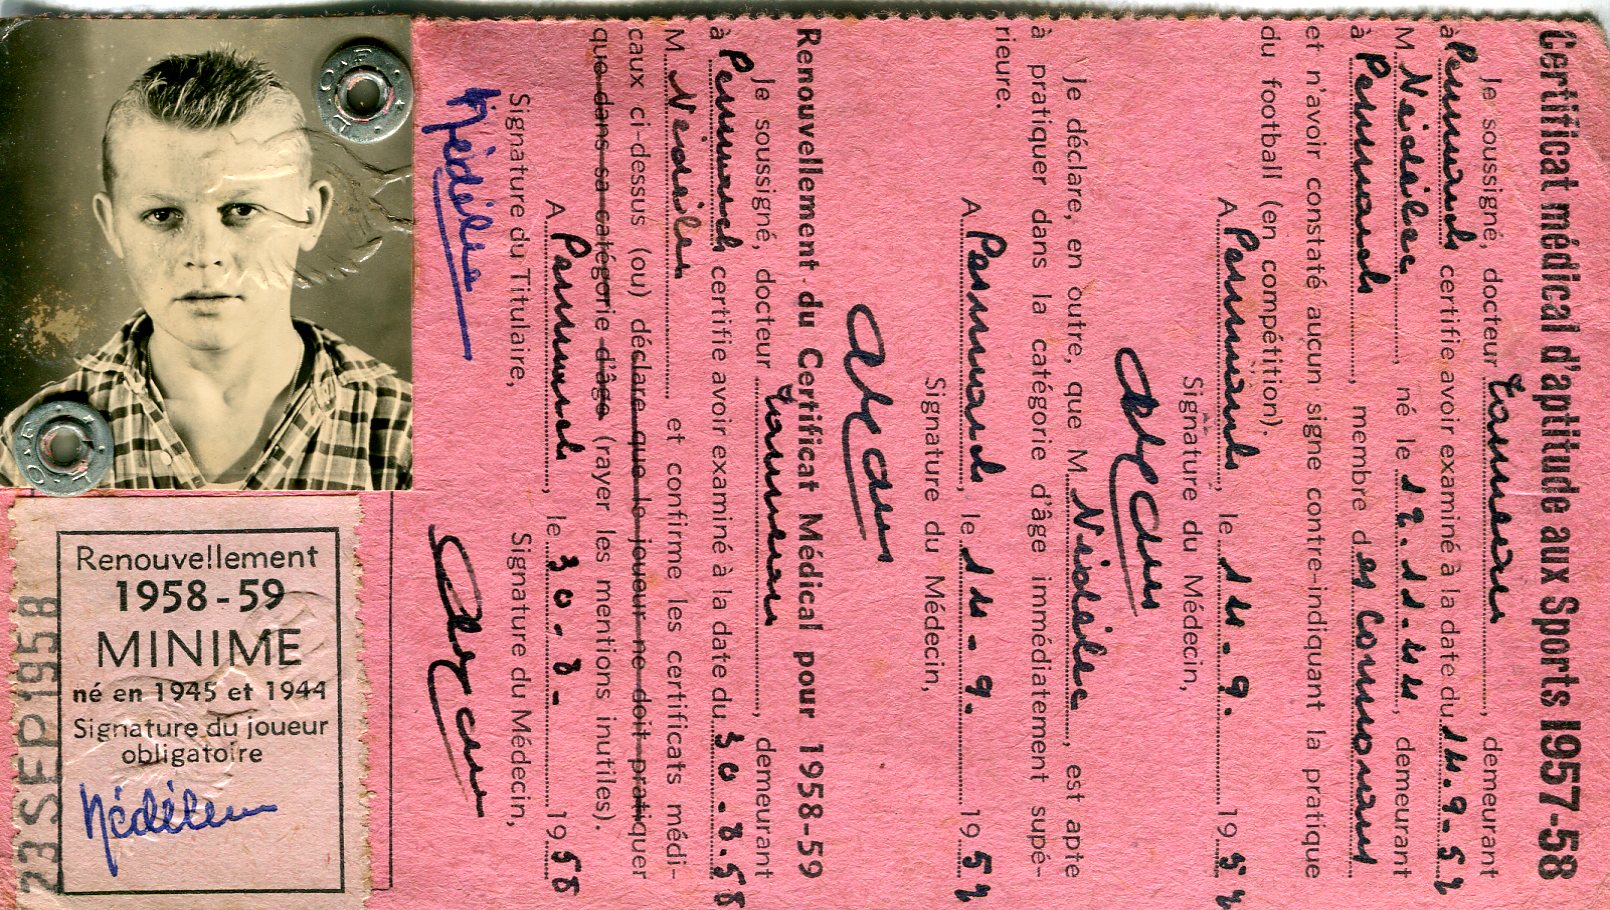 Certificat médical d'aptitude aux Sports 1957-58
Je soussigné, docteur Tanneau, demeurant
à Penmarch certifie avoir examiné à la date du 14.9.57
M. Nédélec, né le 12.11.44, demeurant
à Penmarch, membre des Cormorans
et n'avoir constaté aucun signe contre-indiquant la pratique
du football (en compétition).
A Penmarch, le 14.9. 1957
Signature du Médecin,
Je déclare, en outre, que M. Nédélec, est apte
à pratiquer dans la catégorie d'âge immédiatement supé-
rieure.
A Penmarch, le 14-9. 1957
Signature du Médecin,
Renouvellement du Certificat Médical pour 1958-59
Je soussigné, docteur Tanneau, demeurant
à Penmarch certifie avoir examiné à la date du 30-8.58
M. Nédélec et confirme les certificats médi-
caux ci-dessus (ou) déclare que le joueur ne doit pratiquer
que dans sa catégorie d'âge (rayer les mentions inutiles).
A Penmarch, le 30-8- 1958
Signature du Titulaire,
Signature du Médecin,
Nédélec
Renouvellement
1958-59
MINIME
né en 1945 et 1944
Signature du joueur
obligatoire
Nédélec
23 SEP 1958